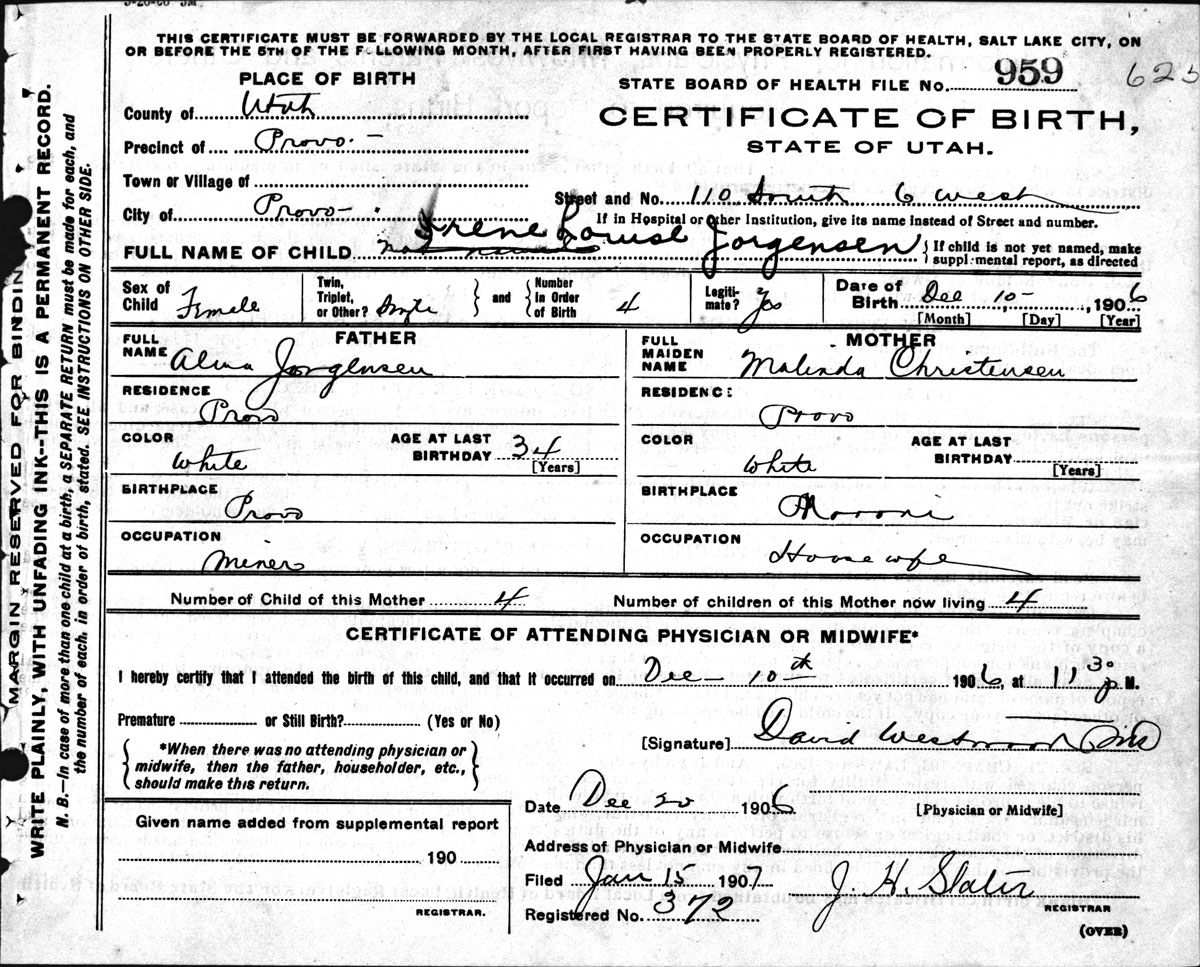 THIS CERTIFICATE MUST BE FORWARDED BY THE LOCAL REGISTRAR TO THE STATE BOARD OF HEALTH, SALT LAKE CITY, ON
OR BEFORE THE 5TH OF THE F LLOWING MONTH, AFTER FIRST HAVING BEEN PROPERLY REGISTERED.
PLACE OF BIRTH
STATE BOARD OF HEALTH FILE No. 959 625
County of Utah
CERTIFICATE OF BIRTH,
STATE OF UTAH.
Precinct of Provo
Town or Village of
City of Provo
Street and No. 110 South 6 West
If in Hospital or other Institution, give its name instead of Street and number.
FULL NAME OF CHILD Not named Irene Louise Jorgensen
{ If child is not yet named, make
suppl mental report, as directed
Sex of Child Female
Twin, Triplet, or Other? Single
and
Number in Order of Birth 4
Legiti-mate? Yes
Date of Birth Dec 10 1906
[Month] [Day] [Year]
FATHER
FULL NAME Alma Jorgensen
RESIDENCE
Provo
COLOR White
AGE AT LAST BIRTHDAY 34
[Years]
BIRTHPLACE
Provo
OCCUPATION
Miner
MOTHER
FULL MAIDEN NAME Malinda Christensen
RESIDENCE
Provo
COLOR White
AGE AT LAST BIRTHDAY
[Years]
BIRTHPLACE
Moroni
OCCUPATION
Housewife
Number of Child of this Mother 4
Number of children of this Mother now living 4
CERTIFICATE OF ATTENDING PHYSICIAN OR MIDWIFE*
I hereby certify that I attended the birth of this child, and that it occurred on Dec 10th 1906, at 11 30 p M.
Premature or Still Birth? (Yes or No)
{ *When there was no attending physician or
midwife, then the father, householder, etc.,
should make this return. }
[Signature] David Westwood
[Physician or Midwife]
Date Dec 20 1906
Given name added from supplemental report
190
REGISTRAR.
Address of Physician or Midwife
Filed Jan 15 1907
J. H. Slater
REGISTRAR
Registered No. 372
(OVER)
MARGIN RESERVED FOR BINDIN
WRITE PLAINLY, WITH UNFADING INK--THIS IS A PERMANENT RECORD.
N. B.—In case of more than one child at a birth, a SEPARATE RETURN must be made for each, and
the number of each, in order of birth, stated. SEE INSTRUCTIONS ON OTHER SIDE.